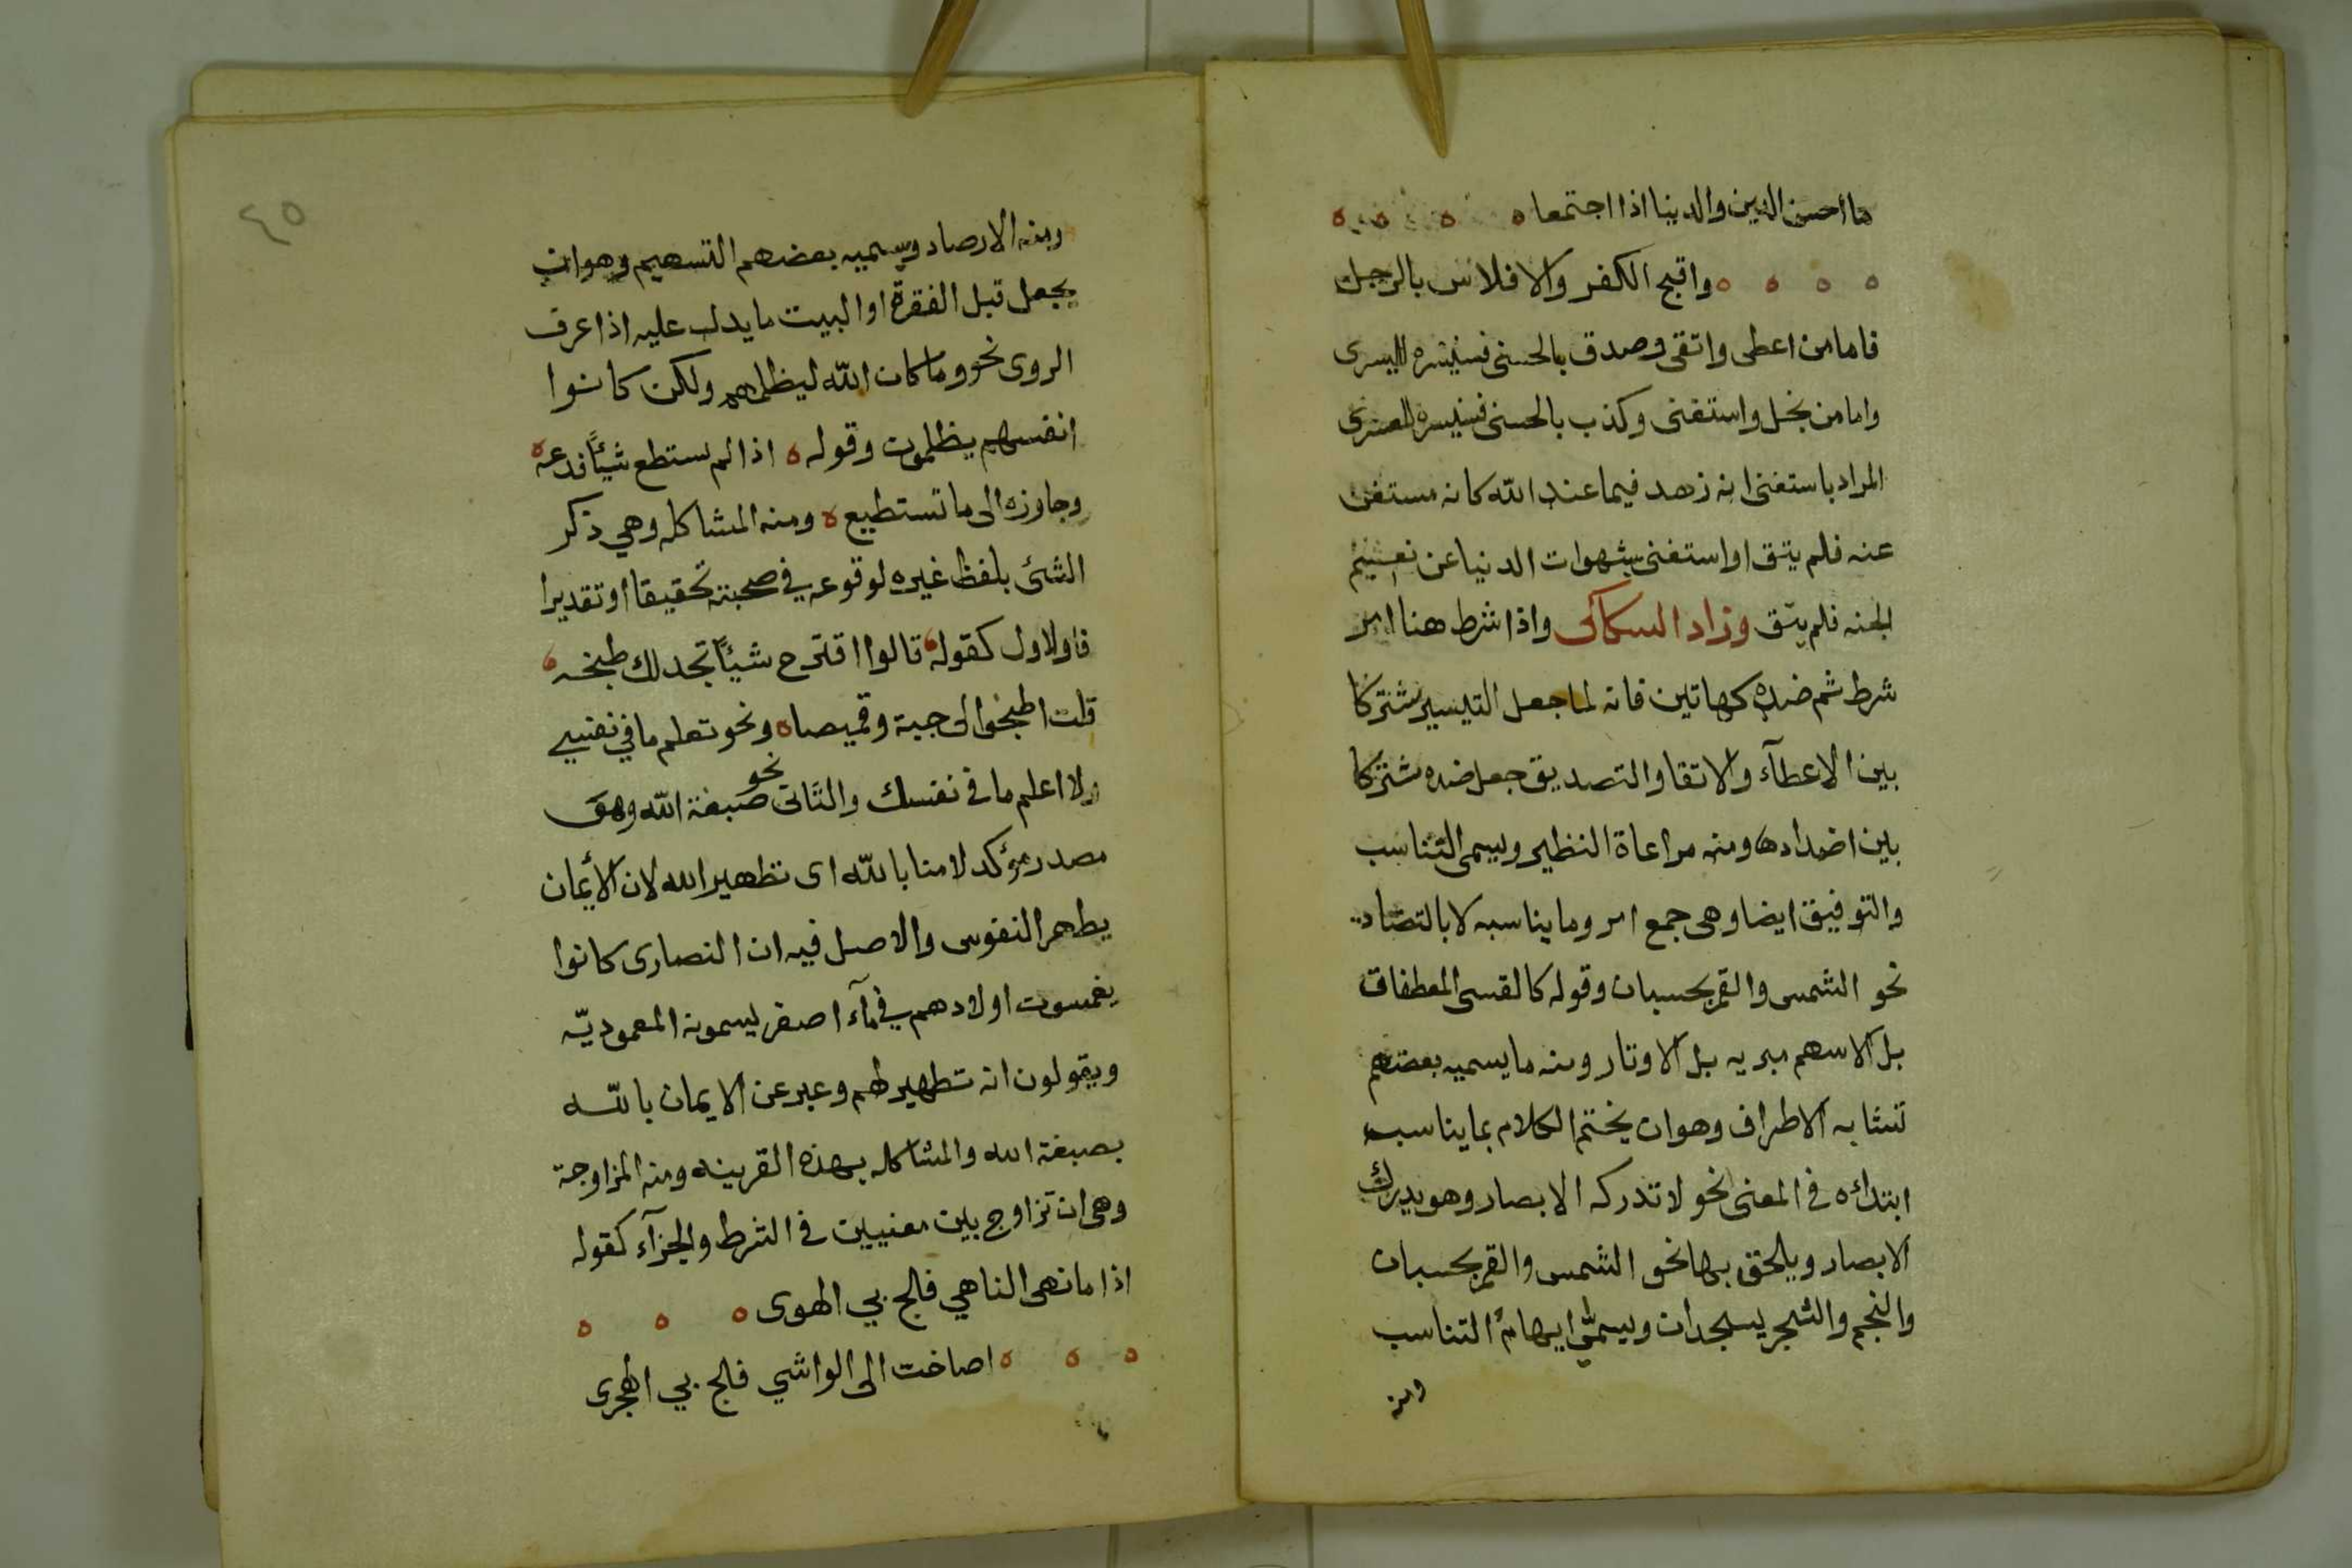 ما احسن الدين والدنيا اذا اجتمعا ه ه ه ه
ه ه ه ه واقبح الكفر والافلاس بالرجل
فاما من اعطى واتقى وصدق بالحسنى فسنيسره لليسرى
واما من بخل واستغنى وكذب بالحسنى فسنيسره للعسرى
المراد باستغنى انه زهد فيما عند الله كانه مستغن
عنه فلم يتق او استغنى بشهوات الدنيا عن نعيم
الجنه فلم يتق وزاد السكاكى واذا شرط هنا امر
شرط ثم ضده كهاتين فانه لما جعل التيسير مشتركا
بين الاعطآء والاتقا والتصديق جعل ضده مشتركا
بين اضدادها ومنه مراعاة النظير ويسمى التناسب
والتوفيق ايضا وهى جمع امر وما يناسبه لا بالتضاد
نحو الشمس والقمر بحسبان وقوله كالقسى المعطفات
بل الاسهم مبريه بل الاوتار ومنه ما يسميه بعضهم
تشابه الاطراف وهو ان يختم الكلام بما يناسب
ابتدائه فى المعنى نحو لا تدركه الابصار وهو يدرك
الابصار ويلحق بها نحو الشمس والقمر بحسبان
والنجم والشجر يسجدان ويسمى ايهام التناسب
ومنه
٤٥
ومنه الارصاد ويسميه بعضهم التسهيم وهو ان
يجعل قبل الفقرة او البيت ما يدل عليه اذا عرف
الروى نحو وما كان الله ليظلمهم ولكن كانوا
انفسهم يظلمون وقوله ه اذا لم تستطع شيئًا فدعه ه
وجاوزه الى ما تستطيع ه ومنه المشاكله وهي ذكر
الشئ بلفظ غيره لوقوعه في صحبته تحقيقا او تقديرا
فاولاول كقوله قالوا اقترح شيئًا نجد لك طبخه
قلت اطبخوا لى جبة وقميصا ه ونحو تعلم ما في نفسي
ولا اعلم ما فى نفسك والثانى نحو صبغة الله وهو
مصدر مؤكد لامنا بالله اى تطهير الله لان الأيمان
يطهر النفوس والاصل فيه ان النصارى كانوا
يغمسون اولادهم في مآء اصفر يسمونه المعموديّه
ويقولون انه تطهير لهم وعبر عن الايمان بالله
بصبغة الله والمشاكله بهذه القرينه ومنه المزاوجة
وهى ان تزاوج بين معنيين فى الشرط والجزآء كقوله
اذا ما نهى الناهي فلج بي الهوى ه ه ه
ه ه ه اصاخت الى الواشي فلج بي الهجرى